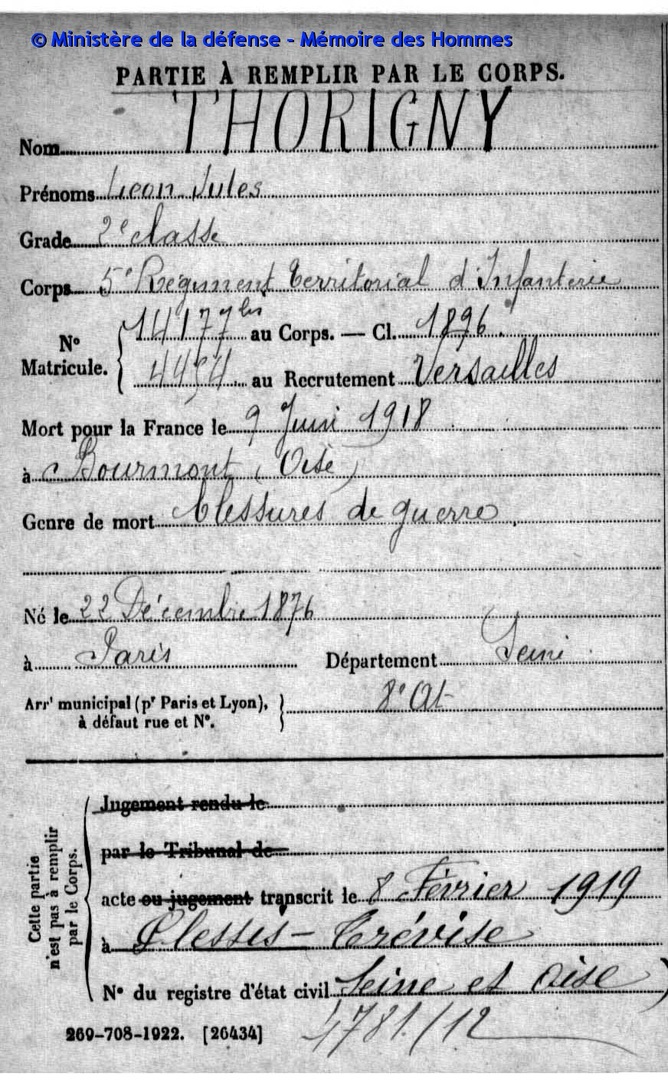 © Ministère de la défense - Mémoire des Hommes
PARTIE À REMPLIR PAR LE CORPS.
Nom THORIGNY
Prénoms Léon Jules
Grade 2e classe
Corps 5e Régiment territorial d'Infanterie
No Matricule. { 14177 bis au Corps. — Cl. 1896
4494 au Recrutement Versailles
Mort pour la France le 9 Juin 1918
à Bourmont (Oise)
Genre de mort blessures de guerre
Né le 22 Décembre 1876
à Paris Département Seine
Arrt municipal (pr Paris et Lyon), à défaut rue et No. } 8e At
Cette partie n'est pas à remplir par le Corps.
Jugement rendu le
par le Tribunal de
acte ou jugement transcrit le 8 Février 1919
à Plessis-Trévise
No du registre d'état civil Seine et Oise)
269-708-1922. [26434] 4781/12